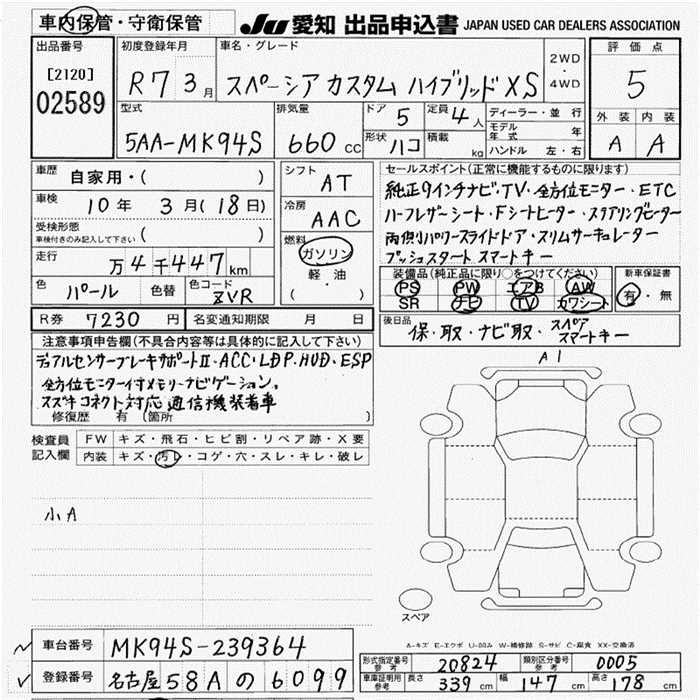 車内保管・守衛保管
JU 愛知 出品申込書 JAPAN USED CAR DEALERS ASSOCIATION
出品番号
[2120]
02589
初度登録年月
R7 3月
車名・グレード
スペーシア カスタム ハイブリッド XS
2WD
・
4WD
評価点
5
外装 内装
A A
型式
5AA-MK94S
排気量
660 cc
ドア 5
定員 4 人
形状 ハコ
積載 kg
ディーラー・並行
モデル年式 年
ハンドル 左・右
車歴
自家用・( )
車検
10年 3月(18日)
受検形態
車検付きのみ記入して下さい
走行
万4千447km
色 パール
色替
色コード ZVR
シフト
AT
冷房
AAC
燃料
ガソリン
軽油
( )
セールスポイント(正常に機能するものに限ります)
純正9インチナビ・TV・全方位モニター・ETC
ハーフレザーシート・Fシートヒーター・ステアリングヒーター
両側パワースライドドア・スリムサーキュレーター
プッシュスタート スマートキー
装備品(純正品に限り○をつけてください)
PS PW エアB AW
SR ナビ TV カワシート
新車保証書
有・無
R券 7230円
名変通知期限 月 日
後日品
保・取・ナビ取・スペア スマートキー
注意事項申告欄(不具合内容等は具体的に記入して下さい)
デュアルセンサーブレーキサポートII・ACC・LDP・HUD・ESP
全方位モニター付メモリーナビゲーション。
スズキコネクト対応通信機装着車
修復歴 有(箇所 )
検査員記入欄
FW キズ・飛石・ヒビ割・リペア跡・X要
内装 キズ・汚レ・コゲ・穴・スレ・キレ・破レ
小A
A1
スペア
A-キズ E-エクボ U-凹み W-補修跡 S-サビ C-腐食 XX-交換済
車台番号 MK94S-239364
登録番号 名古屋58Aの6099
形式指定番号 参考 20824
類別区分番号 参考 0005
車庫証明用 参考 長さ 339cm 幅 147cm 高さ 178cm